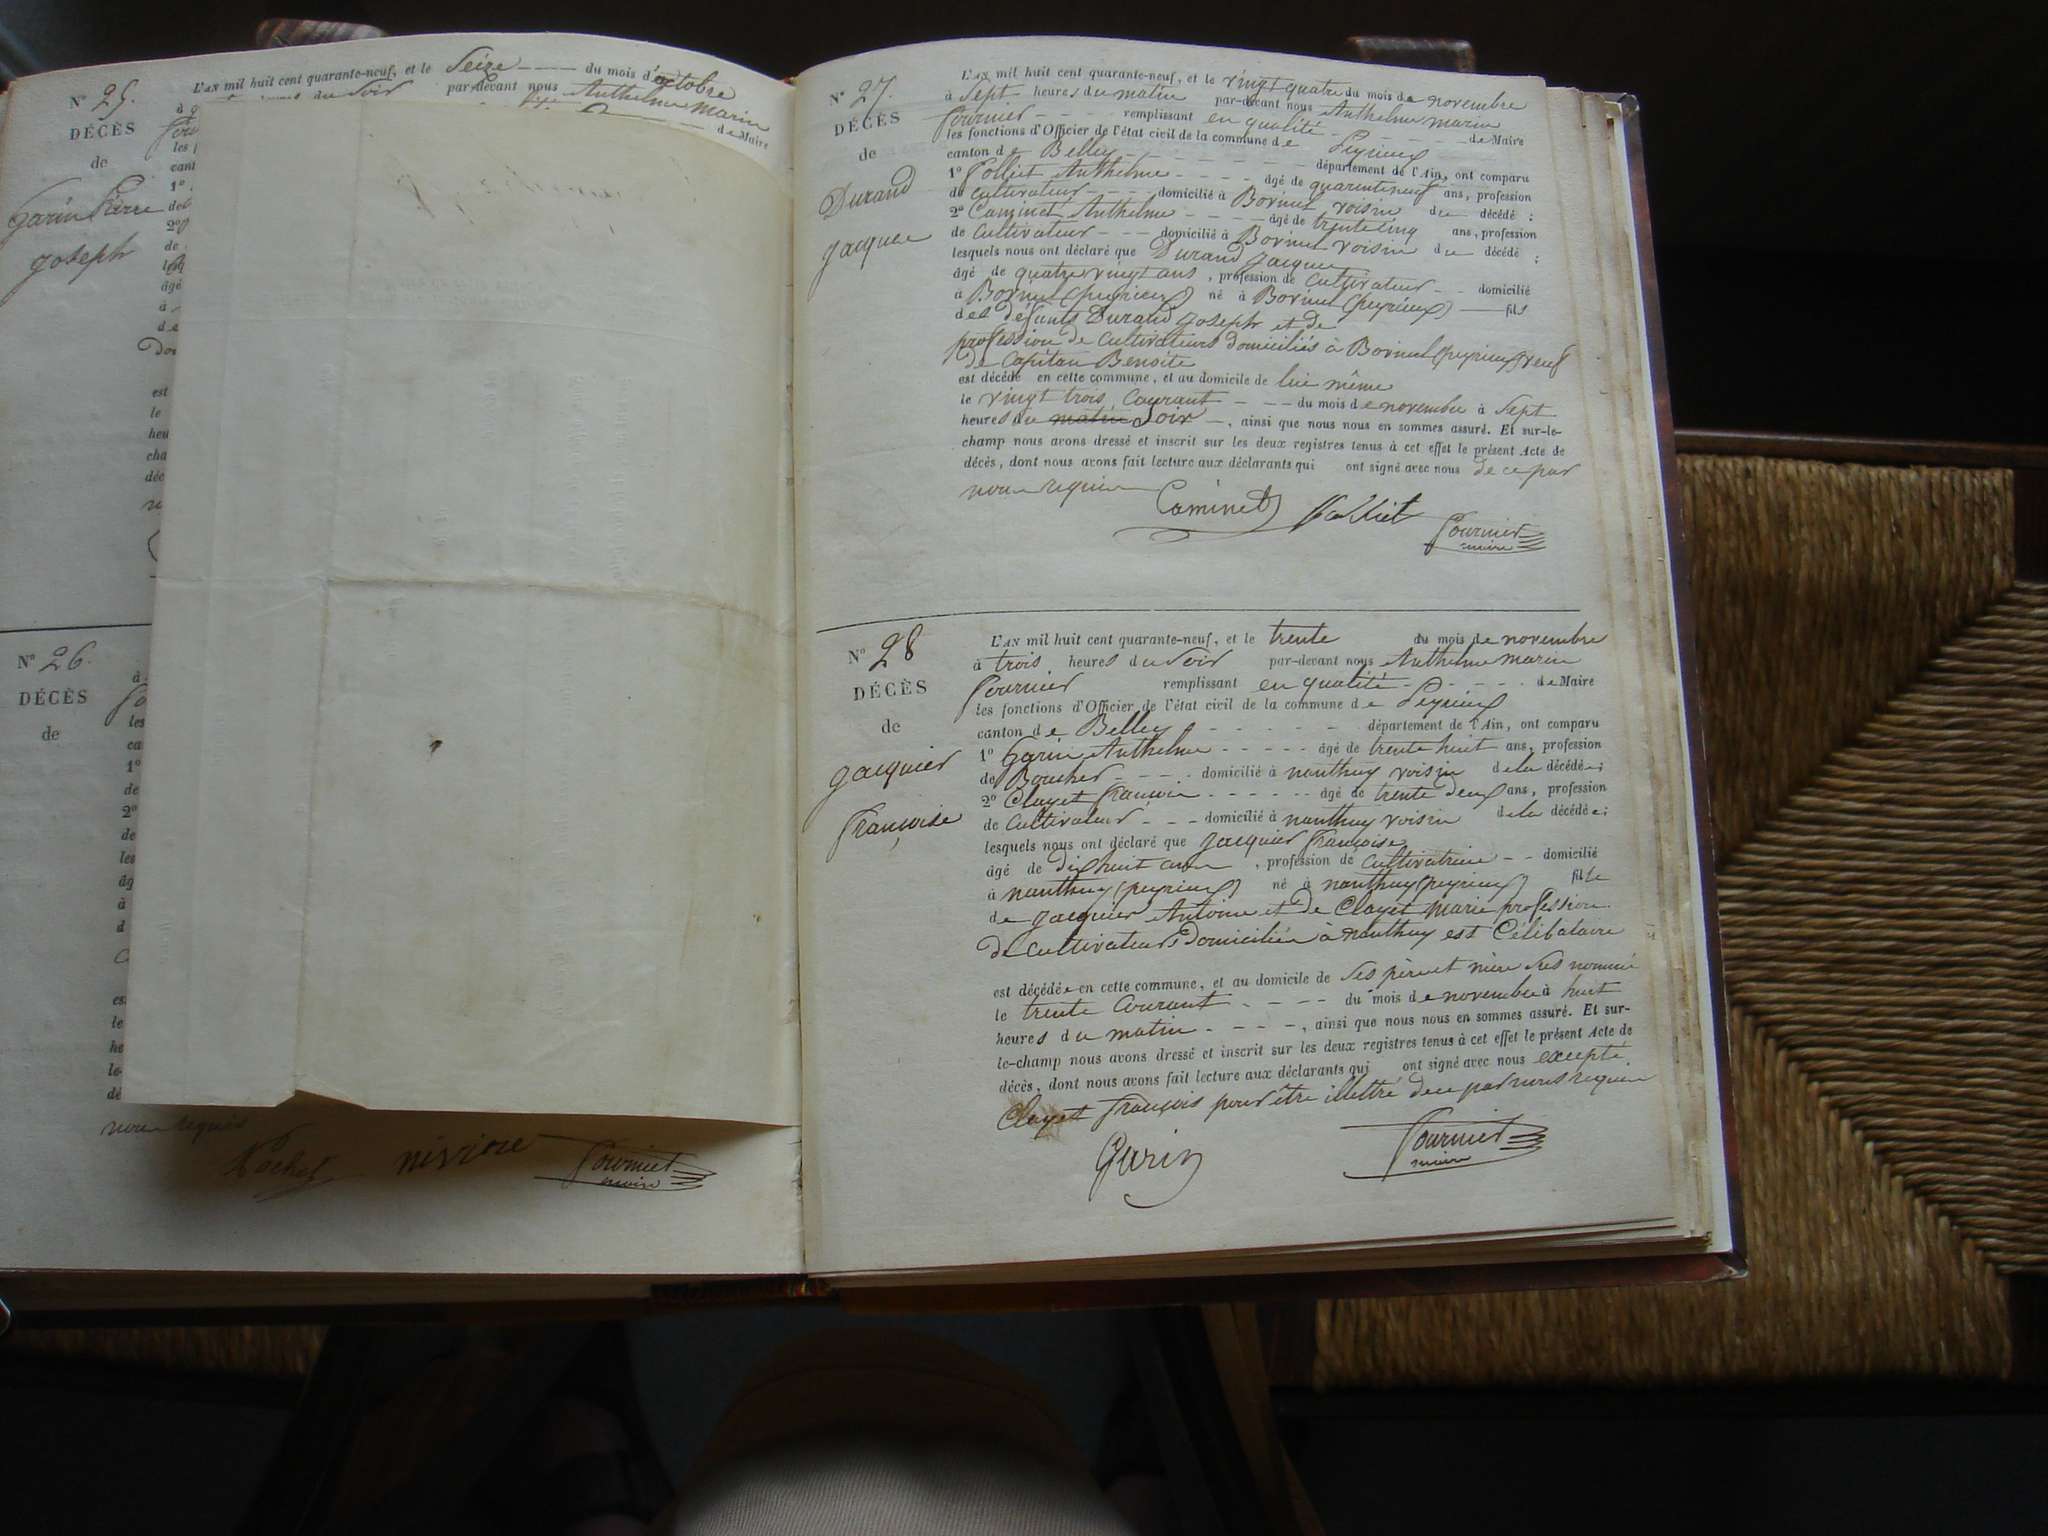 N° 25.
DÉCÈS
de
Garin Pierre
joseph
L'AN mil huit cent quarante-neuf, et le Seize du mois d'octobre
du Soir par-devant nous Anthelme Marin
de Maire
1°
2°
est
le
N° 26.
DÉCÈS
de
à
les
1°
de
2°
de
les
à
le
nous requis
Pochet nivière Fournier
maire
N° 27.
DÉCÈS
de
Durand
jacques
L'AN mil huit cent quarante-neuf, et le vingt quatre du mois de novembre
à Sept heures du matin par-devant nous Anthelme Marin
Fournier - - - - remplissant en qualité - - - - de Maire
les fonctions d'Officier de l'état civil de la commune de Peyrieux
canton de Belley - - - - - - département de l'Ain, ont comparu
1° Polliet Anthelme - - - - âgé de quarente neuf ans, profession
de cultivateur - - - - domicilié à Borinel voisin du décédé ;
2° Caminet Anthelme - - - - âgé de trente cinq ans, profession
de Cultivateur - - - domicilié à Borinel voisin du décédé ;
lesquels nous ont déclaré que Durand jacques
âgé de quatre vingt ans , profession de cultivateur - - domicilié
à Borinel (peyrieux) né à Borinel (peyrieux) — fils
des défunts Durand joseph et de
profession de cultivateurs domiciliés à Borinel (peyrieux) veuf
de Capitan Benoite
est décédé en cette commune, et au domicile de lui même
le vingt trois Courant - - - du mois de novembre à Sept
heures du matin Soir —, ainsi que nous nous en sommes assuré. Et sur-le-
champ nous avons dressé et inscrit sur les deux registres tenus à cet effet le présent Acte de
décès, dont nous avons fait lecture aux déclarants qui ont signé avec nous de ce par
nous requis
Caminet Polliet Fournier
maire
N° 28
DÉCÈS
de
jacquier
françoise
L'AN mil huit cent quarante-neuf, et le trente du mois de novembre
à trois heures du Soir par-devant nous Anthelme marin
Fournier remplissant en qualité - - - - - de Maire
les fonctions d'Officier de l'état civil de la commune de Peyrieux
canton de Belley - - - - - - département de l'Ain, ont comparu
1° Garin Anthelme - - - - - âgé de trente huit ans, profession
de Boucher - - - - domicilié à nanthuy voisin de la décédée ;
2° Clayet françois - - - - - - âgé de trente deux ans, profession
de Cultivateur - - - domicilié à nanthuy voisin de la décédée ;
lesquels nous ont déclaré que jacquier françoise
âgé de dix huit ans , profession de cultivatrice - - domicilié
à nanthuy (peyrieux) né à nanthuy (peyrieux) fille
de jacquier Antoine et de Clayet Marie profession
de cultivateurs domiciliés à nanthuy est Célibataire
est décédée en cette commune, et au domicile de Ses père et mère Sus nommé
le trente Courant - - - - du mois de novembre à huit
heures du matin - - - -, ainsi que nous nous en sommes assuré. Et sur-
le-champ nous avons dressé et inscrit sur les deux registres tenus à cet effet le présent Acte de
décès, dont nous avons fait lecture aux déclarants qui ont signé avec nous excepté
Clayet françois pour être illettré de ce par nous requis
Garin Fournier
maire